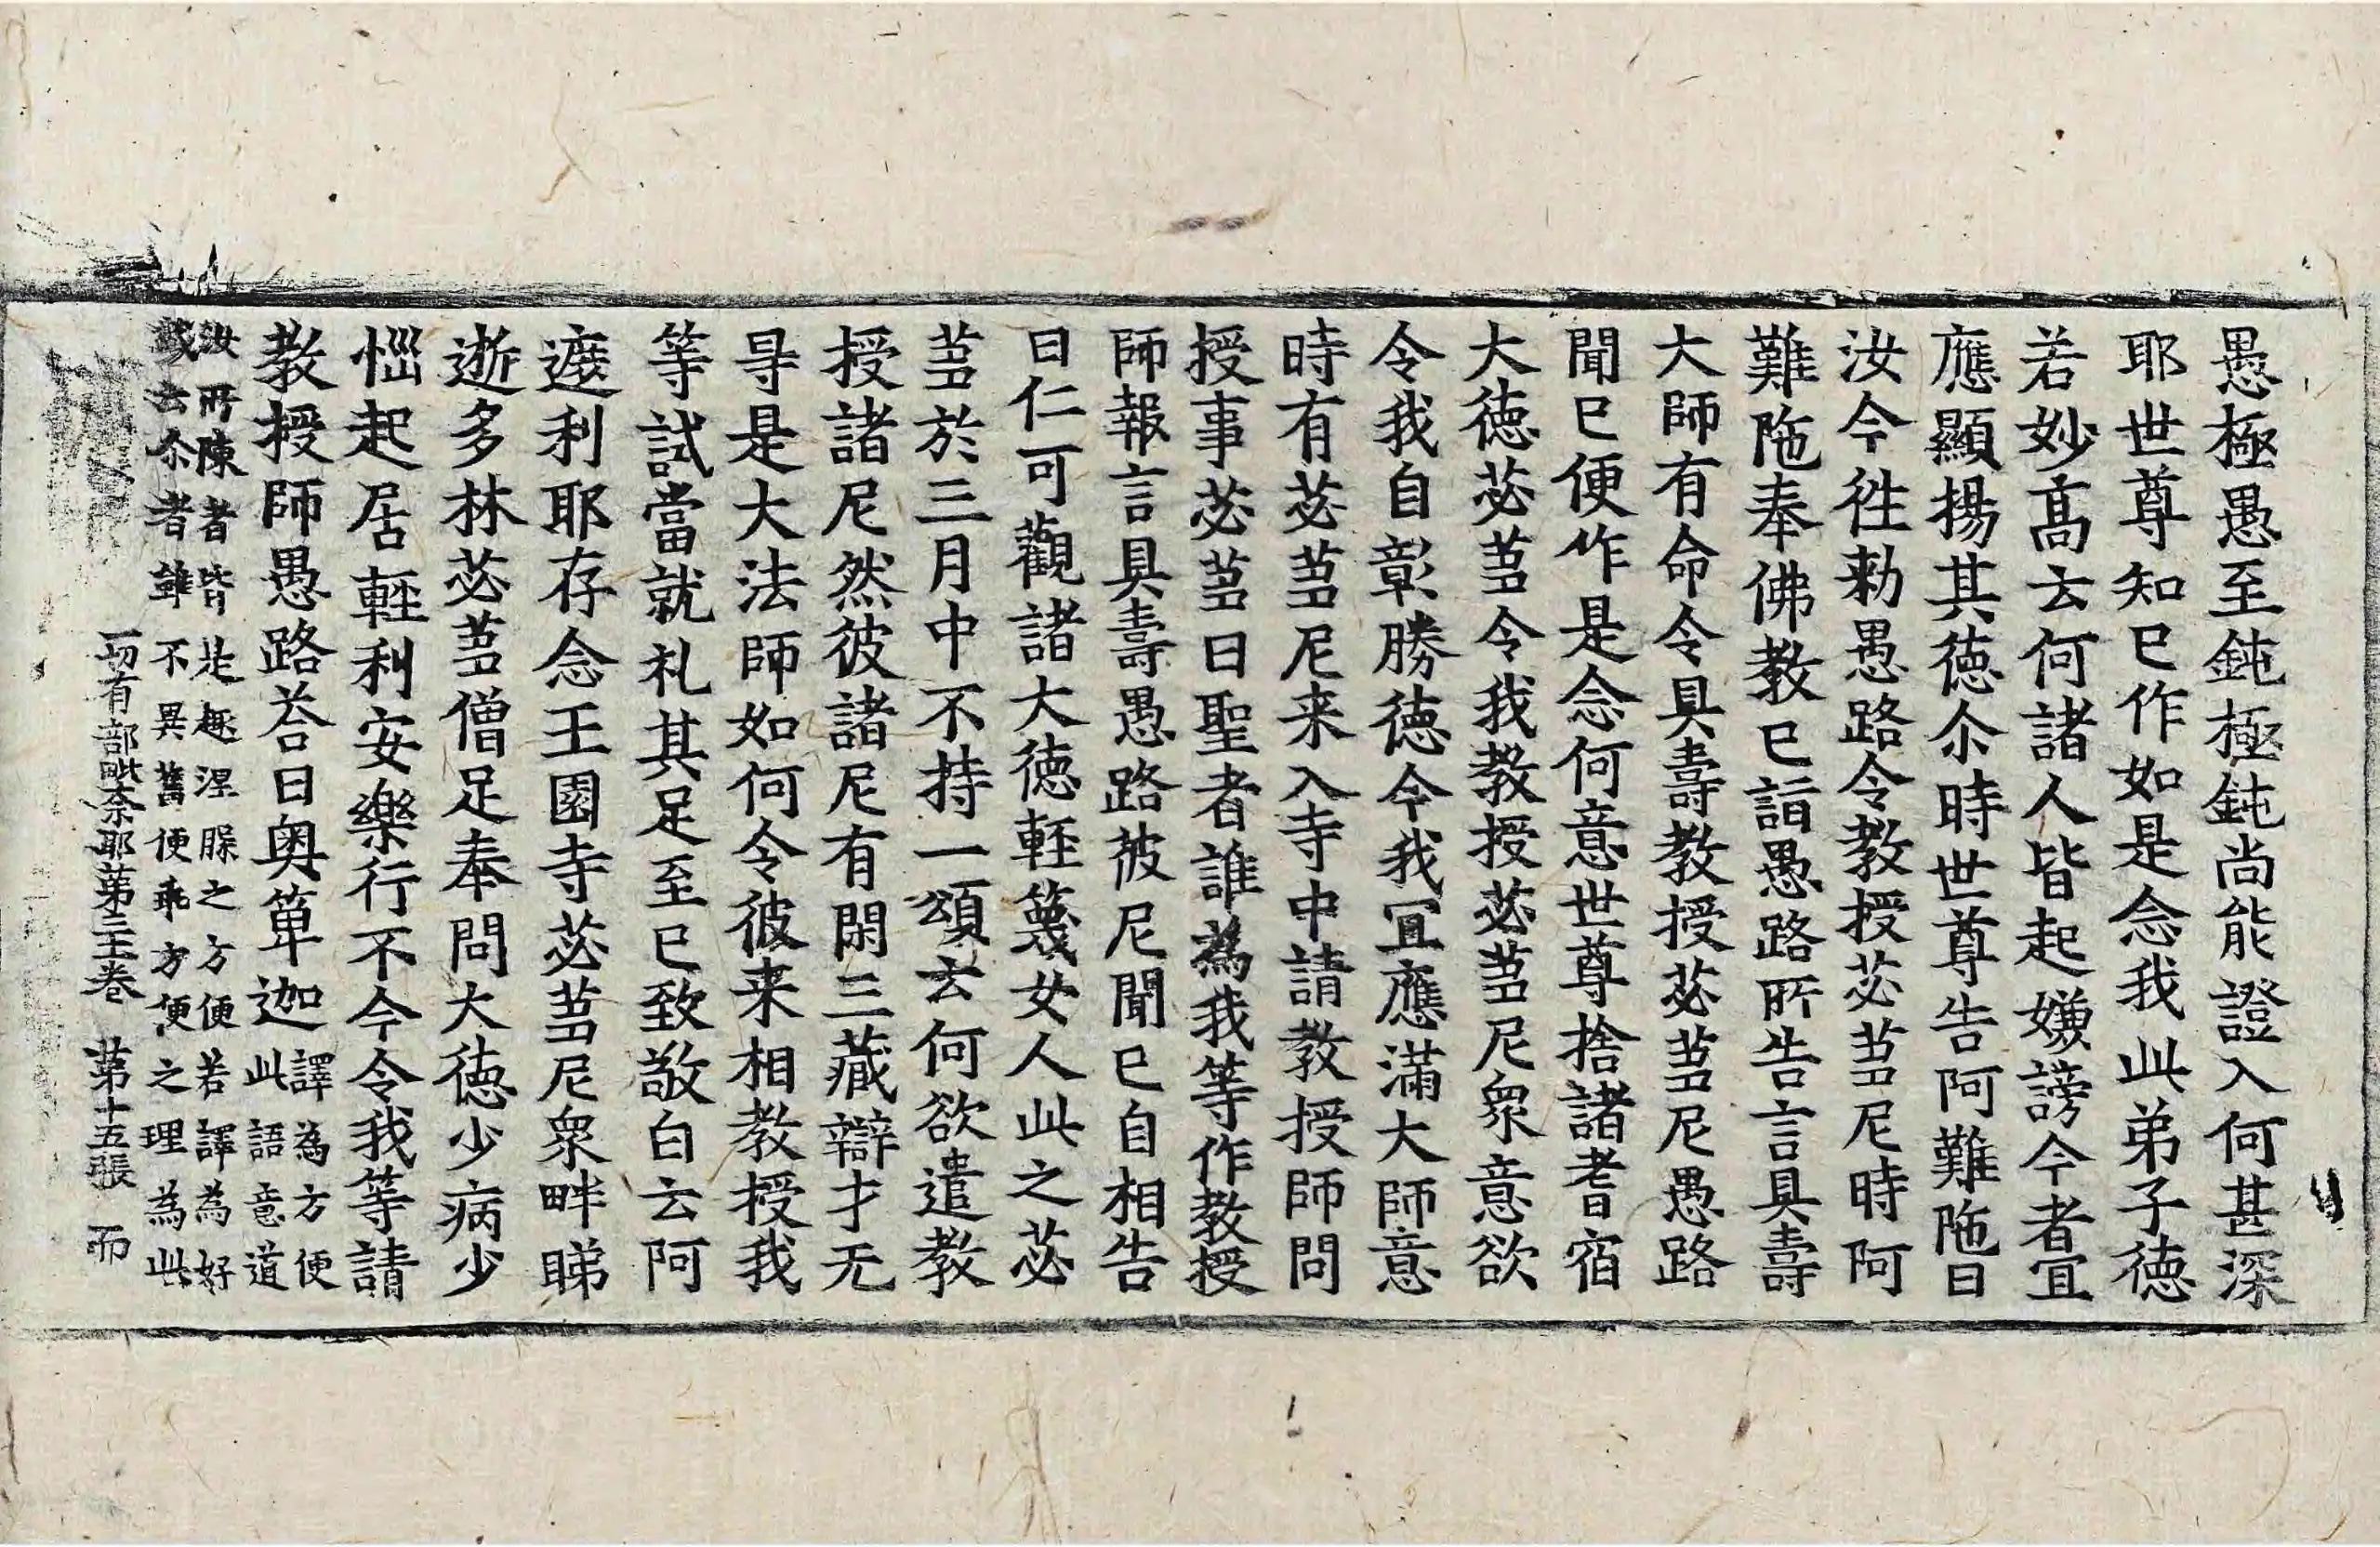 愚極愚至鈍極鈍尚能證入何甚深
耶世尊知已作如是念我此弟子德
若妙高云何諸人皆起嫌謗今者宜
應顯揚其德尒時世尊告阿難陁曰
汝今往勑愚路令教授苾蒭尼時阿
難陁奉佛教已詣愚路所告言具壽
大師有命令具壽教授苾蒭尼愚路
聞已便作是念何意世尊捨諸耆宿
大德苾蒭令我教授苾蒭尼衆意欲
令我自彰勝德今我宜應滿大師意
時有苾蒭尼来入寺中請教授師問
授事苾蒭曰聖者誰為我等作教授
師報言具壽愚路彼尼聞已自相告
曰仁可觀諸大德輕篾女人此之苾
蒭於三月中不持一頌云何欲遣教
授諸尼然彼諸尼有閑三藏辯才无
㝵是大法師如何令彼来相教授我
等試當就礼其足至已致敬白云阿
遮利耶存念王園寺苾蒭尼衆畔睇
逝多林苾蒭僧足奉問大德少病少
惱起居輕利安樂行不今令我等請
教授師愚路荅曰奥箄迦譯為方便
此語意道
汝所陳者皆是趣涅槃之方便若譯為好
或云尒者雖不異舊便乖方便之理為此
一切有部毗柰耶苐三十一卷 苐十五張 而